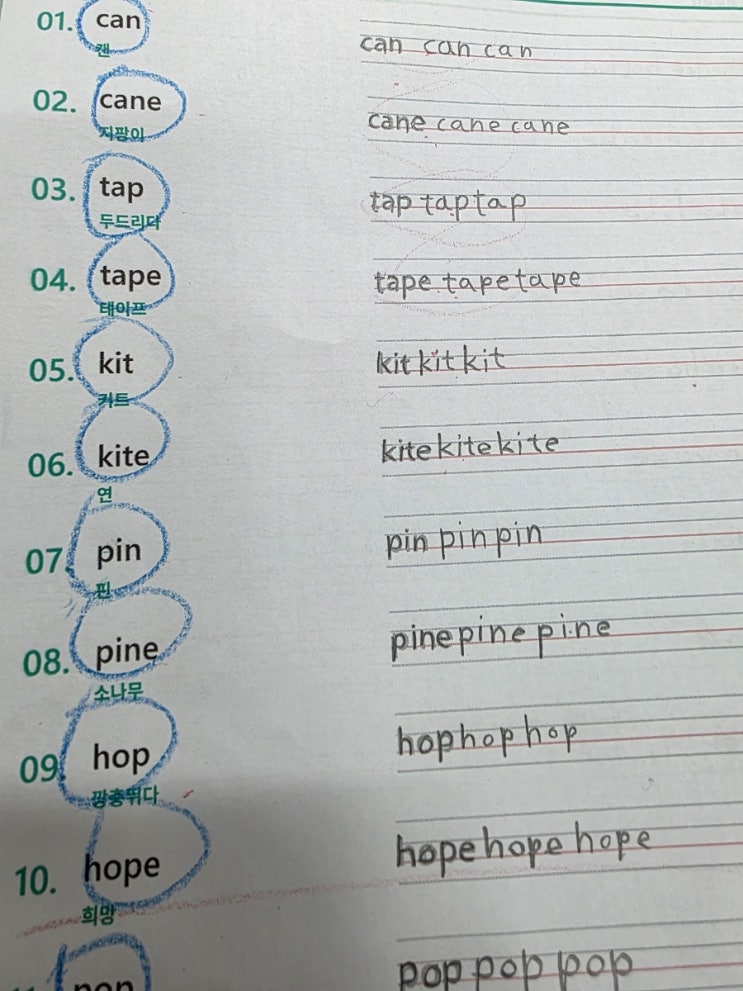 01. can can can can
캔
02. cane cane cane cane
지팡이
03. tap tap tap tap
두드리다
04. tape tape tape tape
테이프
05. kit kit kit kit
키트
06. kite kite kite kite
연
07. pin pin pin pin
핀
08. pine pine pine pine
소나무
09. hop hop hop hop
깡충뛰다
10. hope hope hope hope
희망
pop pop pop